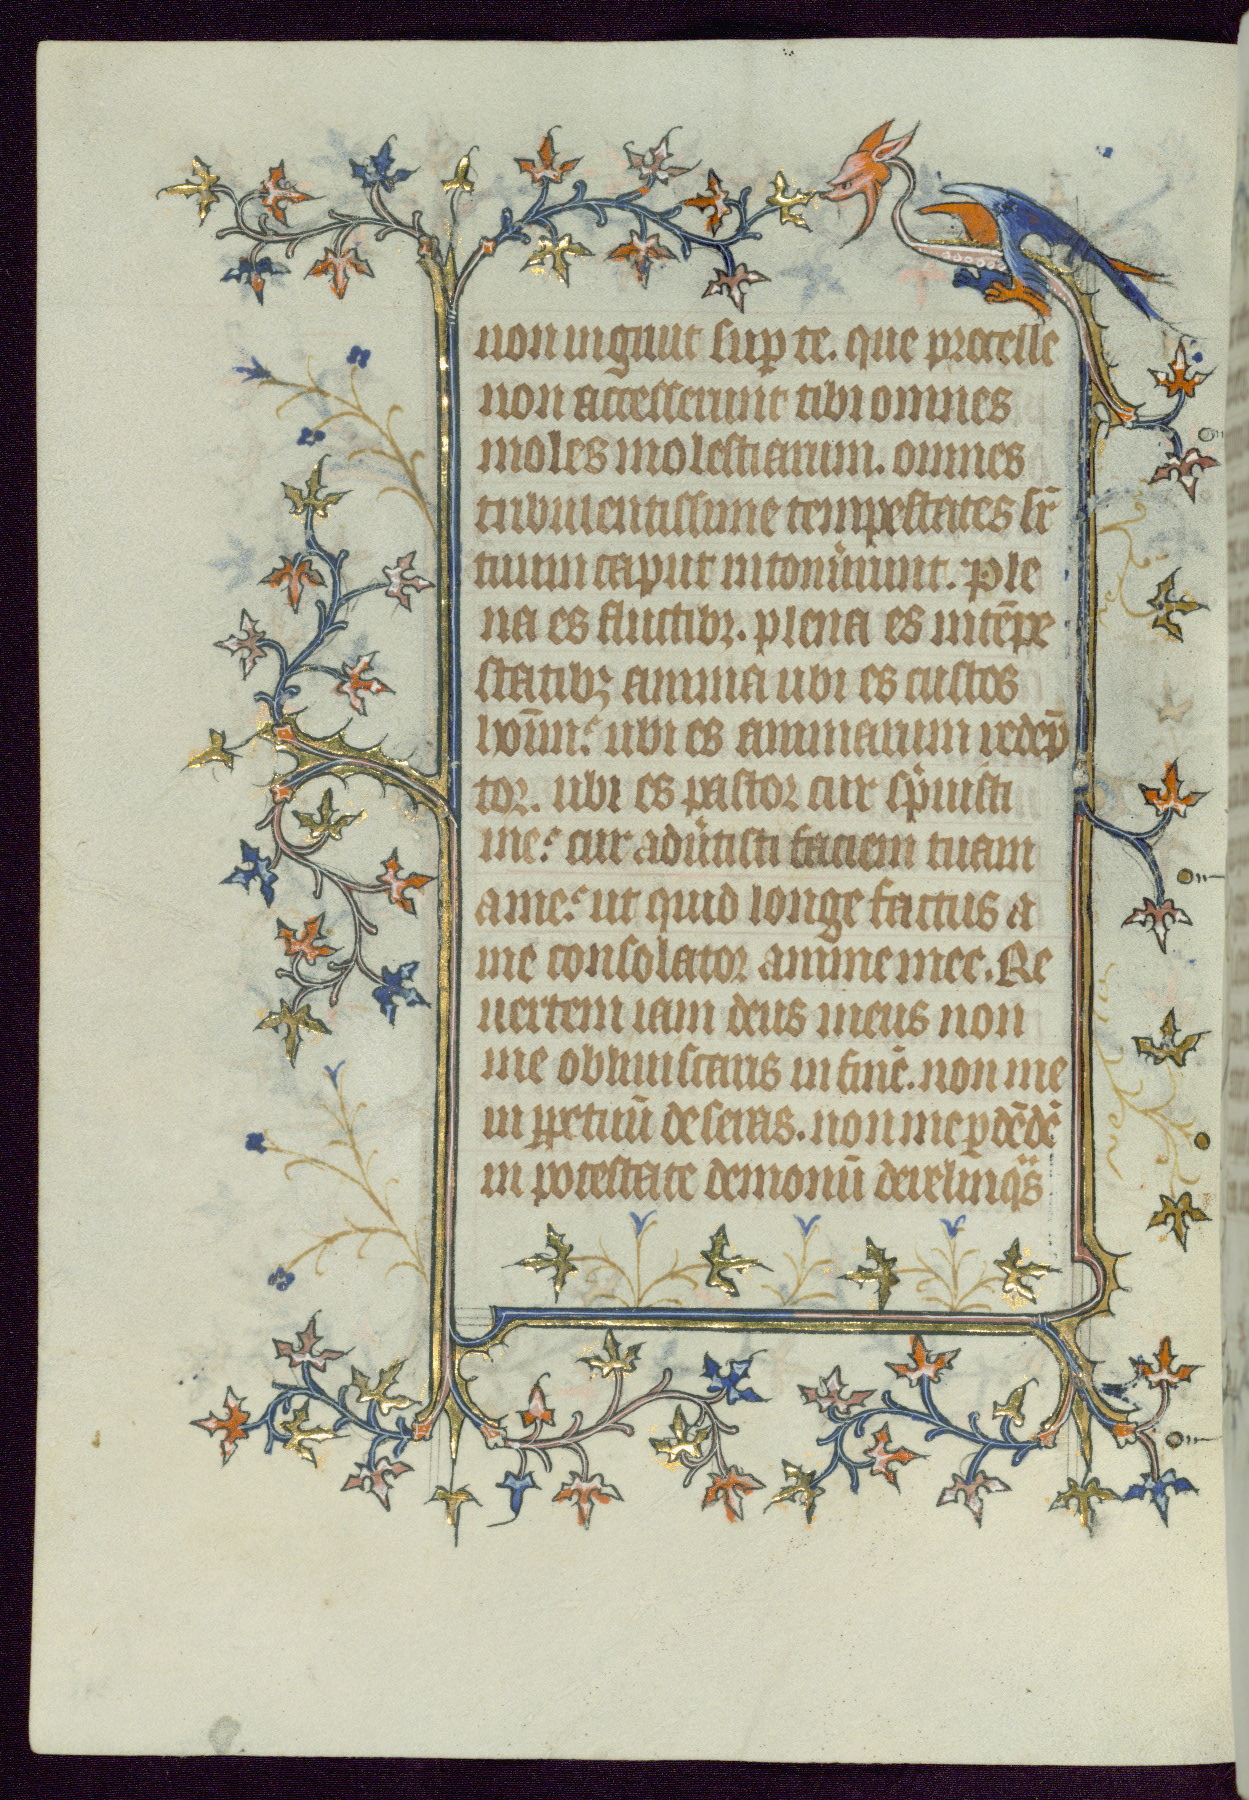 non ingruut sup te. que procelle
non accesserunt tibi omnes
moles molestiarum. omnes
turbulentissime tempestates sr̄
tuum caput intonuerunt. Ple
na es fluctibꝫ. plena es intēpe
statibꝫ anima ubi es custos
hoīm? ubi es animarum redēp
tor. ubi es pastor cur spreuisti
me? cur aduertisti faciem tuam
a me? ut quid longe factus a
me consolator anime mee. Re
uertem iam deus meus non
me obliuiscaris in finē. non me
in ꝑpetuū deseras. non me ꝑdēdū
in potestate demonū derelinqͣs